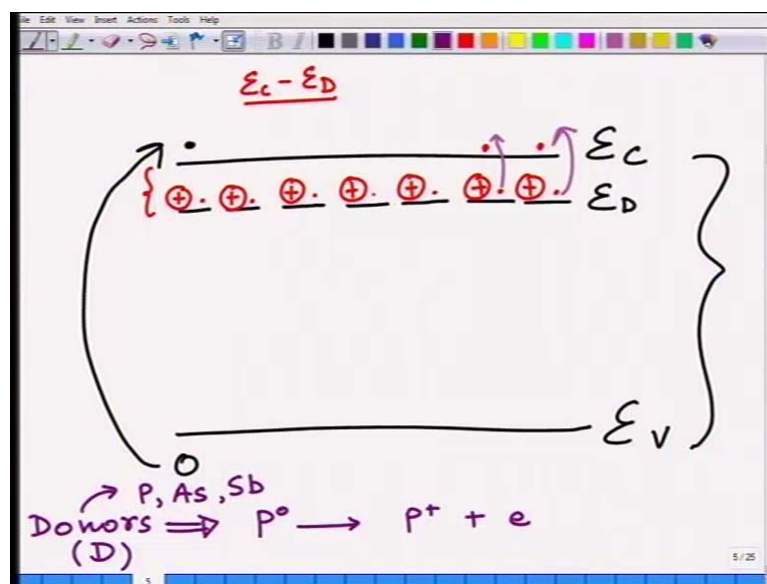 File Edit View Insert Actions Tools Help
B I
εc - εD
εc
εD
εv
P, As, Sb
Donors ⇒ P° → P⁺ + e
(D)
5/25
5